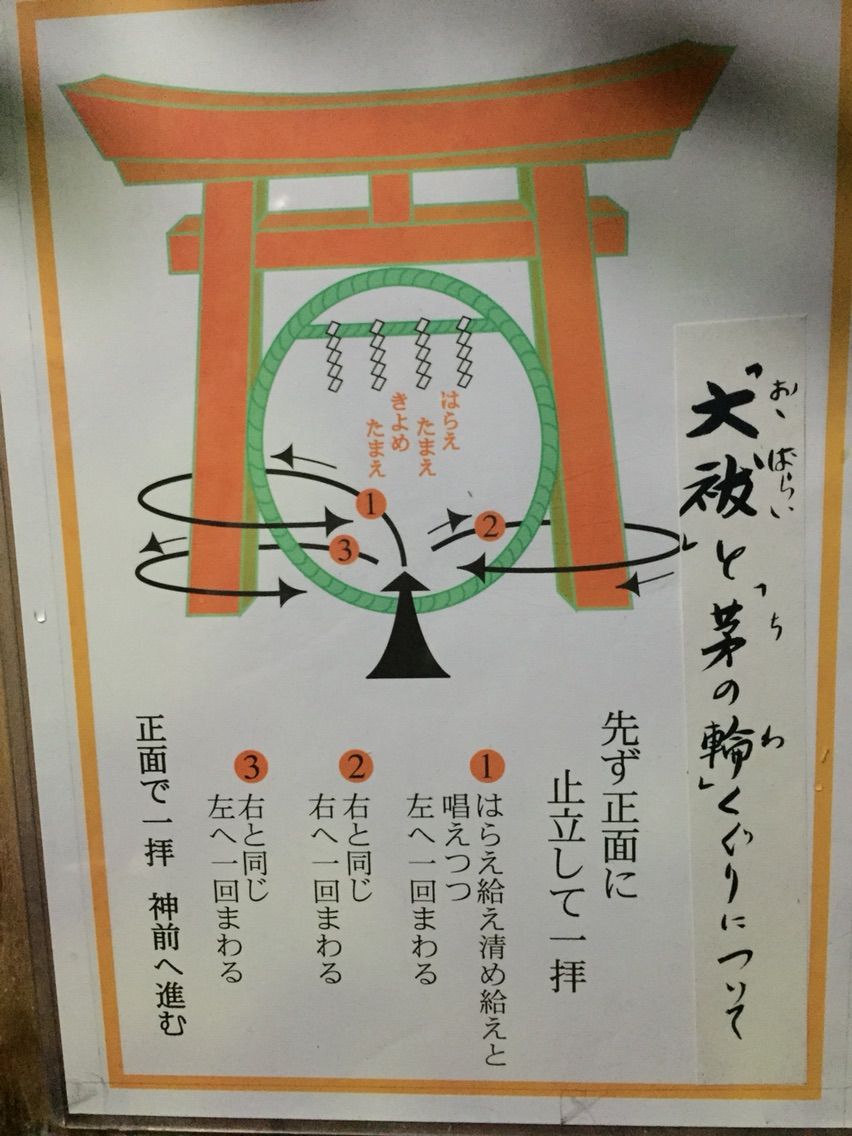 「大祓」と「茅の輪」くぐりについて
おゝはらい
ちわ
はらえ
たまえ
きよめ
たまえ
1
2
3
先ず正面に
止立して一拝
1 はらえ給え清め給えと
唱えつつ
左へ一回まわる
2 右と同じ
右へ一回まわる
3 右と同じ
左へ一回まわる
正面で一拝 神前へ進む